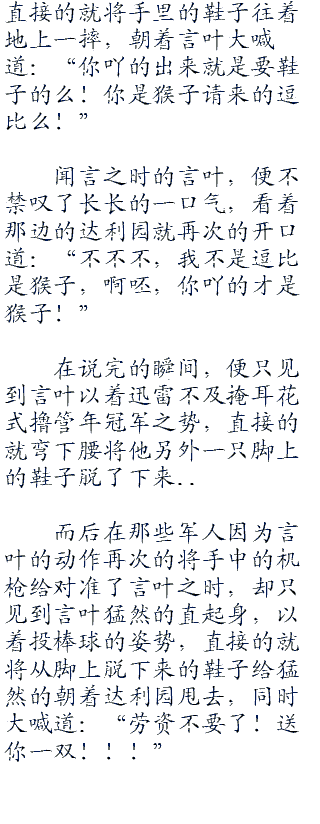 直接的就将手里的鞋子往着
地上一摔，朝着言叶大喊
道：“你吖的出来就是要鞋
子的么！你是猴子请来的逗
比么！”
闻言之时的言叶，便不
禁叹了长长的一口气，看着
那边的达利园就再次的开口
道：“不不不，我不是逗比
是猴子，啊呸，你吖的才是
猴子！”
在说完的瞬间，便只见
到言叶以着迅雷不及掩耳花
式撸管年冠军之势，直接的
就弯下腰将他另外一只脚上
的鞋子脱了下来..
而后在那些军人因为言
叶的动作再次的将手中的机
枪给对准了言叶之时，却只
见到言叶猛然的直起身，以
着投棒球的姿势，直接的就
将从脚上脱下来的鞋子给猛
然的朝着达利园甩去，同时
大喊道：“劳资不要了！送
你一双！！！”